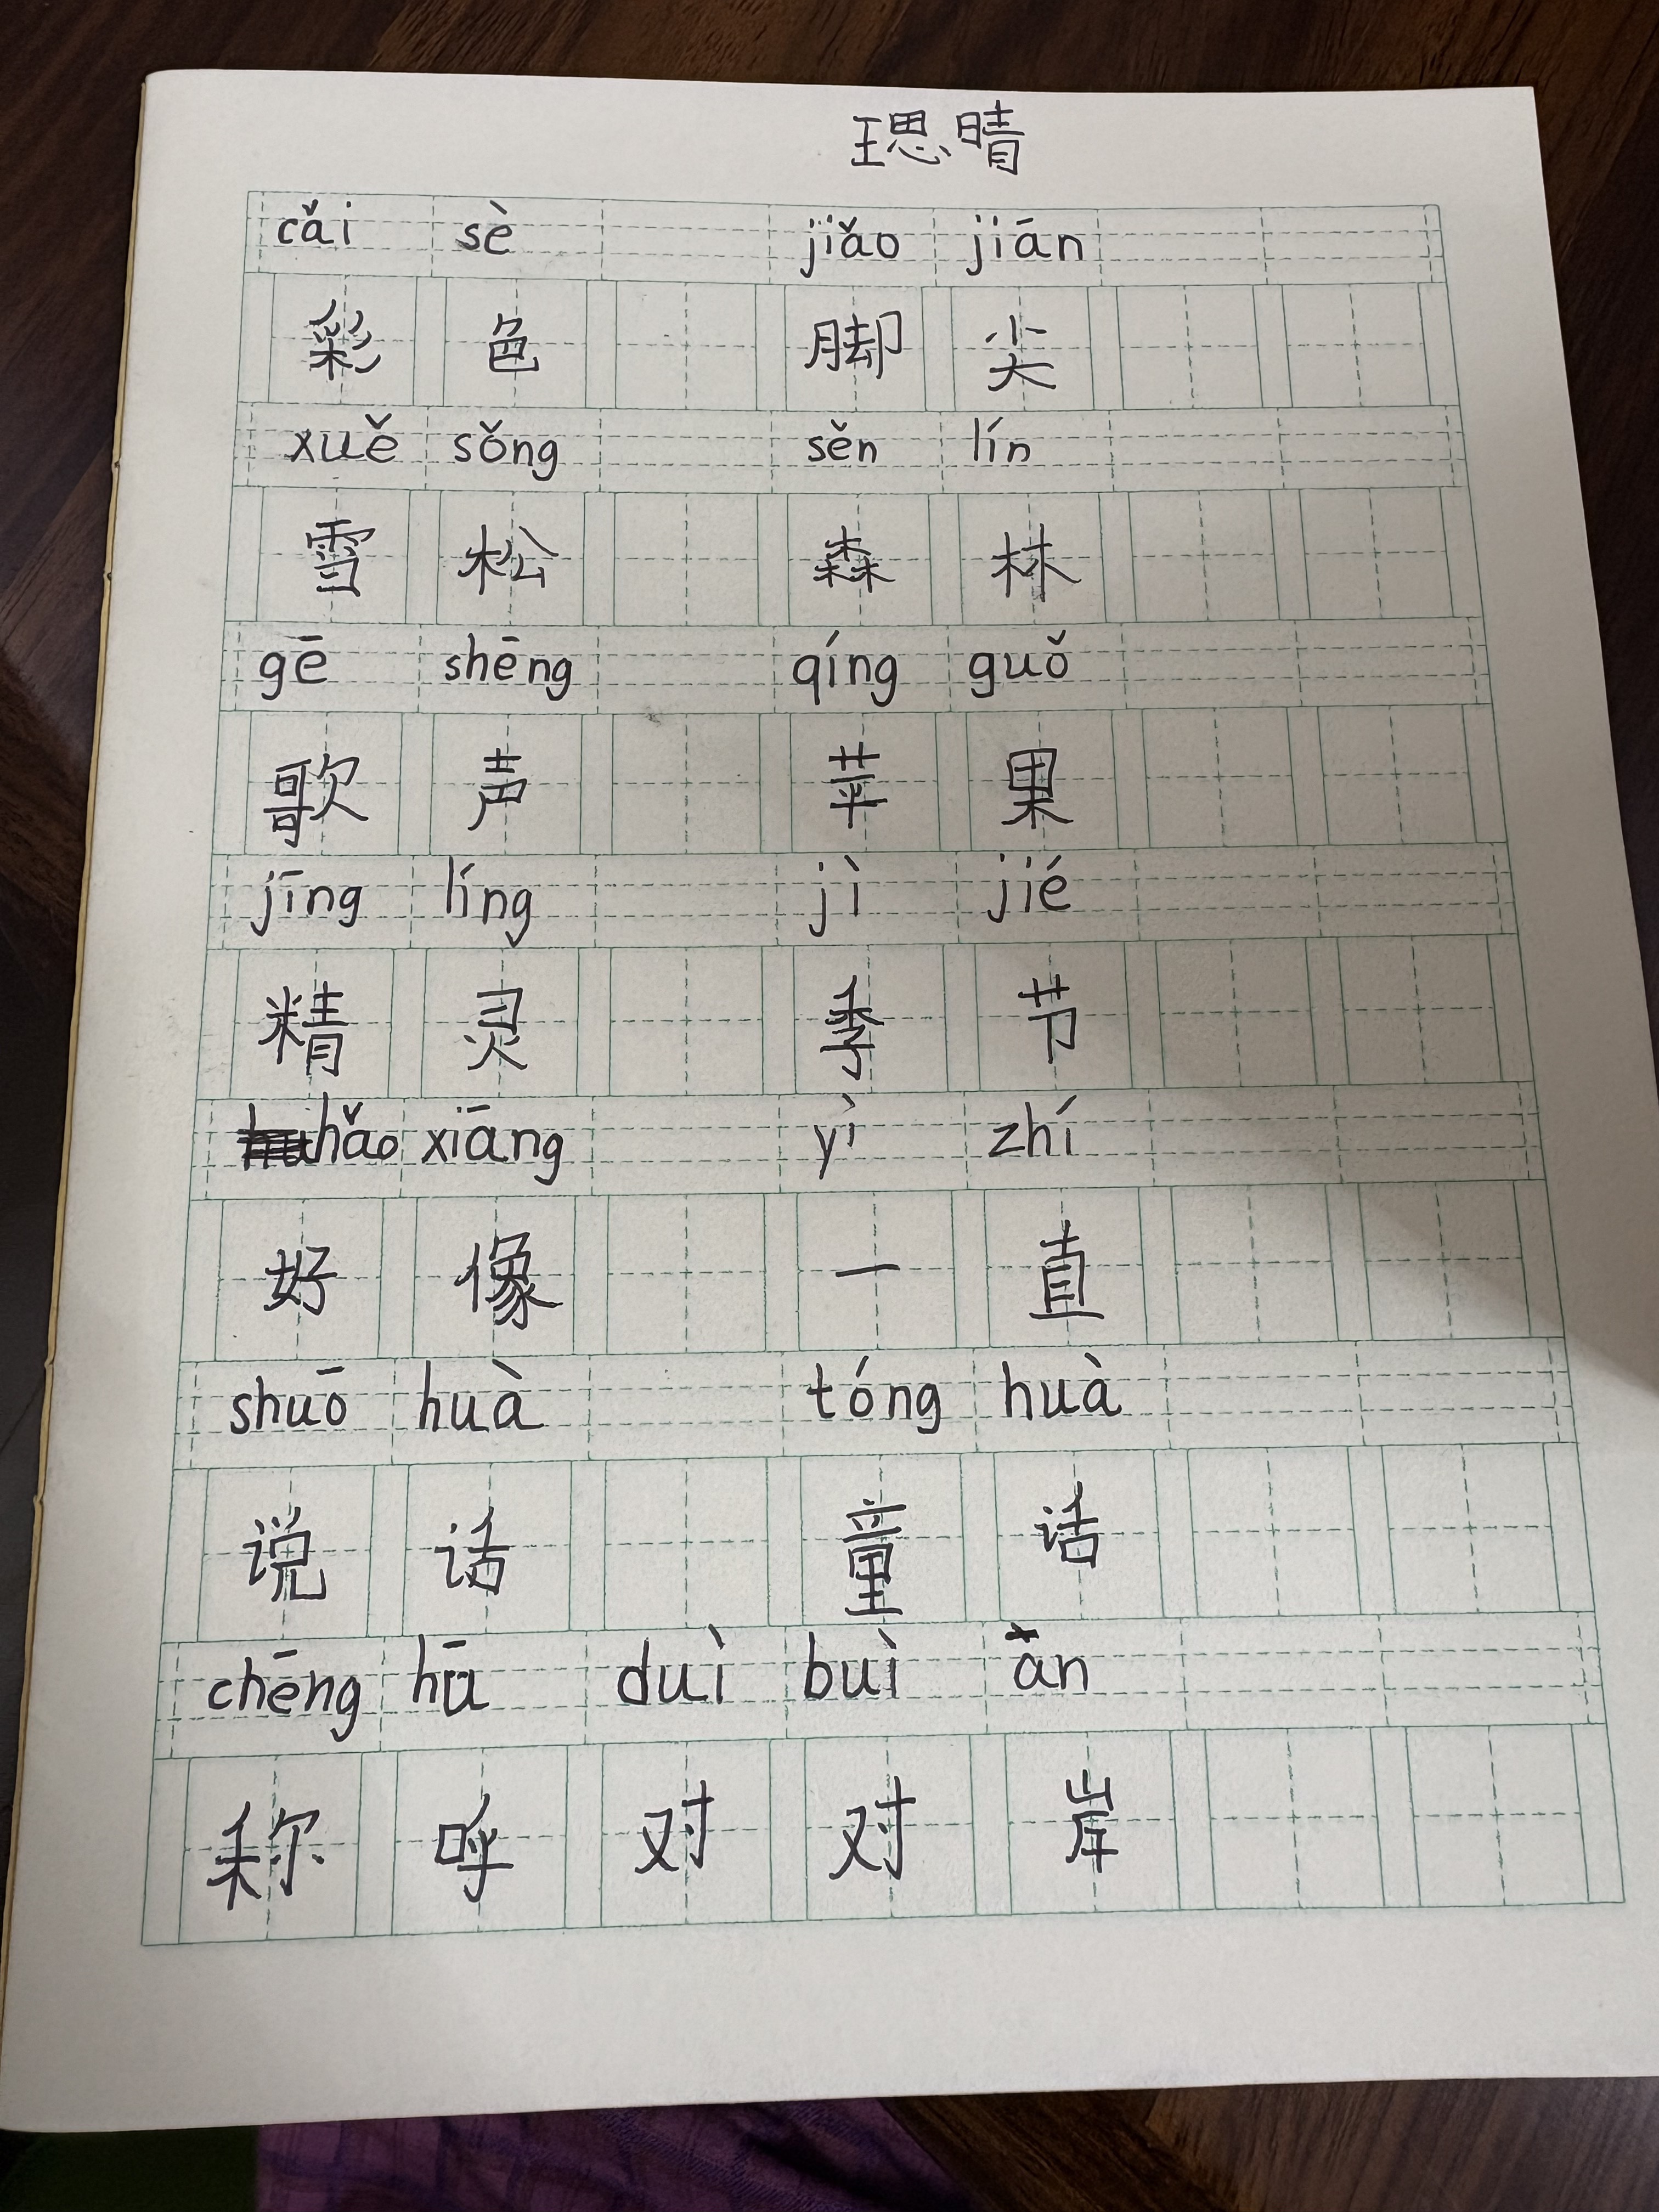 王思晴
cǎi sè jiǎo jiān
彩色 脚尖
xuě sǒng sěn lín
雪松 森林
gē shēng qíng guǒ
歌声 苹果
jīng líng jì jié
精灵 季节
hǎo xiāng yì zhí
好像 一直
shuō huà tóng huà
说话 童话
chēng hū duì buì ǎn
称呼 对对岸